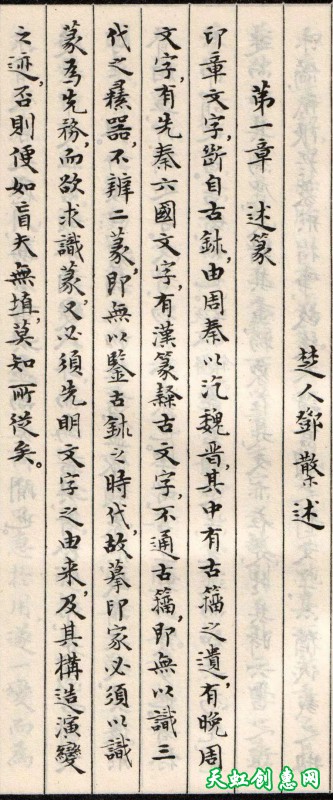 楚人鄧散木述
第一章 述篆
印章文字,斷自古鉨,由周秦以汔魏晋,其中有古籀之遺,有晚周
文字,有先秦六國文字,有漢篆隸古文字,不通古籀,即無以識三
代之彝器,不辨二篆,即無以鑒古鉨之時代,故摹印家必須以識
篆為先務,而欲求識篆,又必須先明文字之由来,及其構造演變
之迹,否則便如盲夫無埴,莫知所從矣。
天虹创惠网